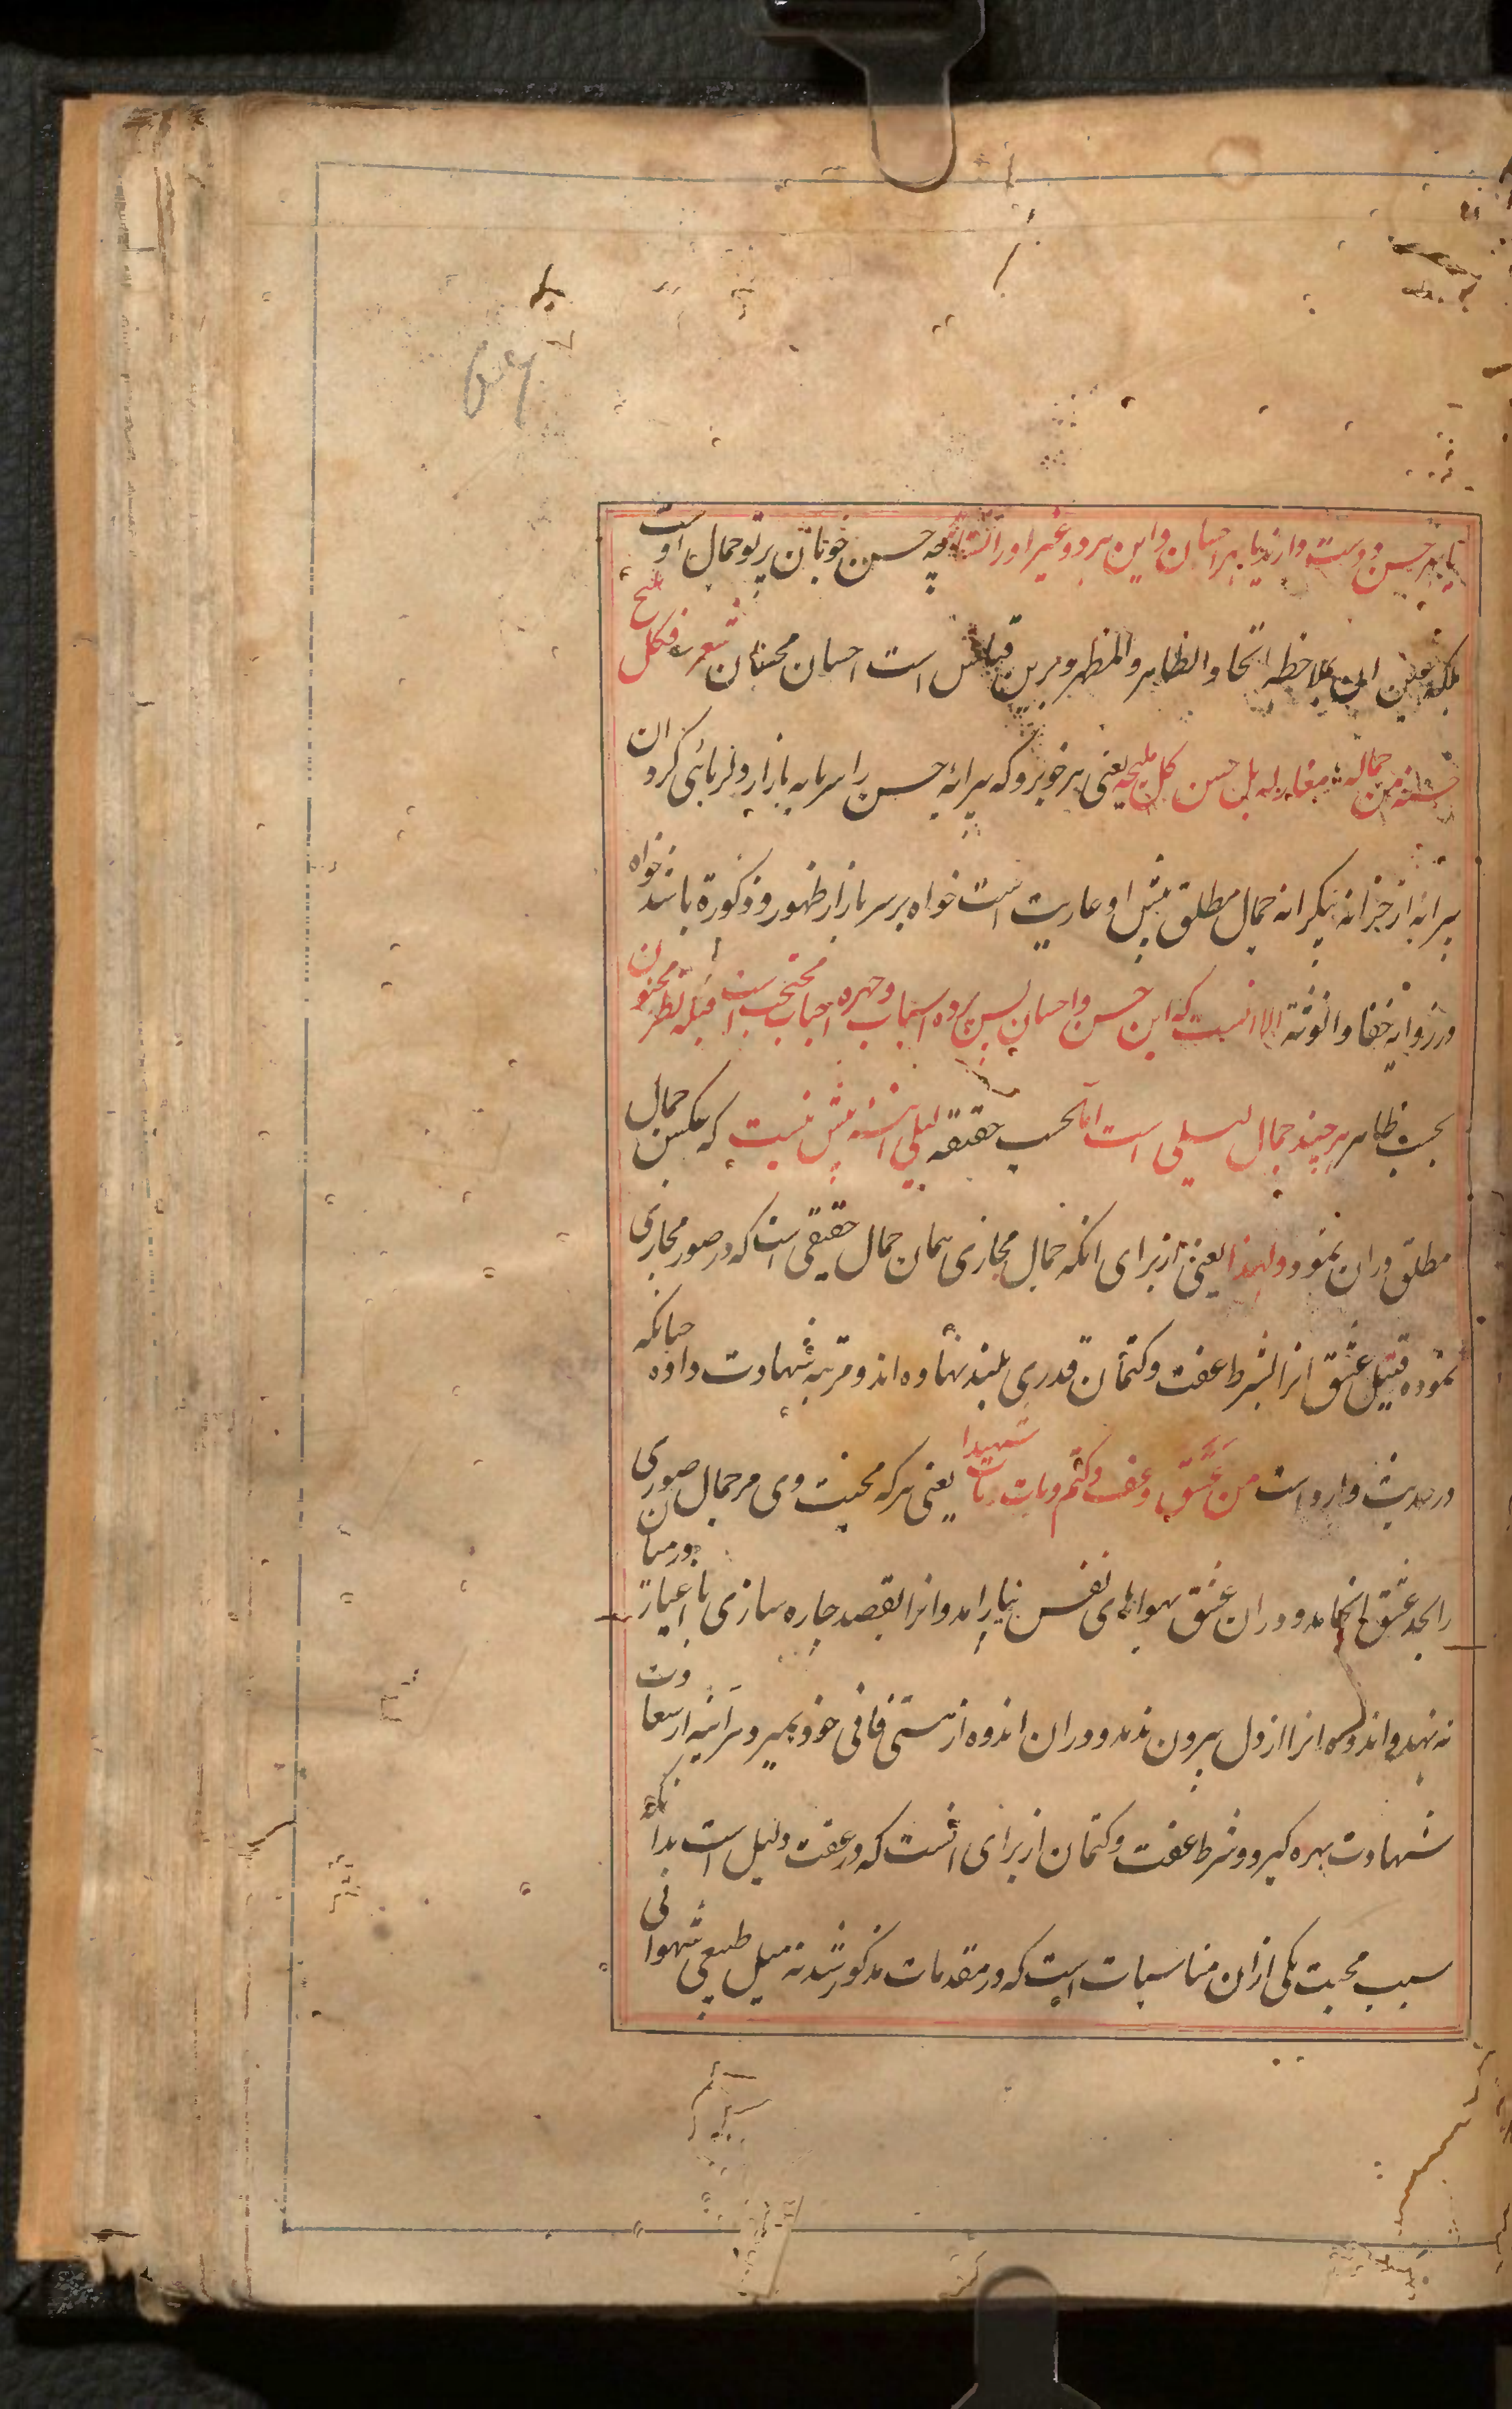 یا بهر حسن دوست دارند یا بهر احسان و این هر دو غیر او را نشاید چه حسن خوبان پرتو جمال اوست
بلکه عین این بملاحظه اتحاد الظاهر والمظهر و برین قیاس است احسان محسنان شعر فکل ملیح
حسنه من جماله معار له بل حسن کل ملیحه یعنی هر خوبرو که پیرایه حسن را سرمایه بازار دلربائی کرد ان
پیرایه از خزانه بیکرانه جمال مطلق پیش او عاریت است خواه بر سر بازار ظهور و ذکورة باشد خواه
در زوایه خفا و انوثة الا انست که این حسن و احسان پس پرده اسباب و چهره احباب محتجب است قبله نظر مجنون
بحسب ظاهر هرچند جمال لیلی است اما بحسب حقیقه لیلی اینه بیش نیست که عکس جمال
مطلق دران نمود ولهذا یعنی از برای انکه جمال مجازی همان جمال حقیقی است که در صور مجازی
نموده قتیل عشق انرا بشرط عفت و کتمان قدری بلند نهاده اند و مرتبه شهادت داده چنانکه
در حدیث وارد است من عشق و عف و کتم و مات مات شهیدا یعنی هر که محبت وی مر جمال صوری
را بحد عشق انجامد و دران عشق بهواهای نفس نیارامد و انرا بقصد چاره سازی با اغیار در میان
نه نهد و اندوه انرا از دل بیرون ندهد و دران اندوه از هستی فانی خود بمیرد هراینه از سعادت
شهادت بهره گیرد و شرط عفت و کتمان از برای انست که در عفت دلیل است بدانکه
سبب محبت یکی ازان مناسبات است که در مقدمات مذکور شد نه میل طبیعی شهوانی